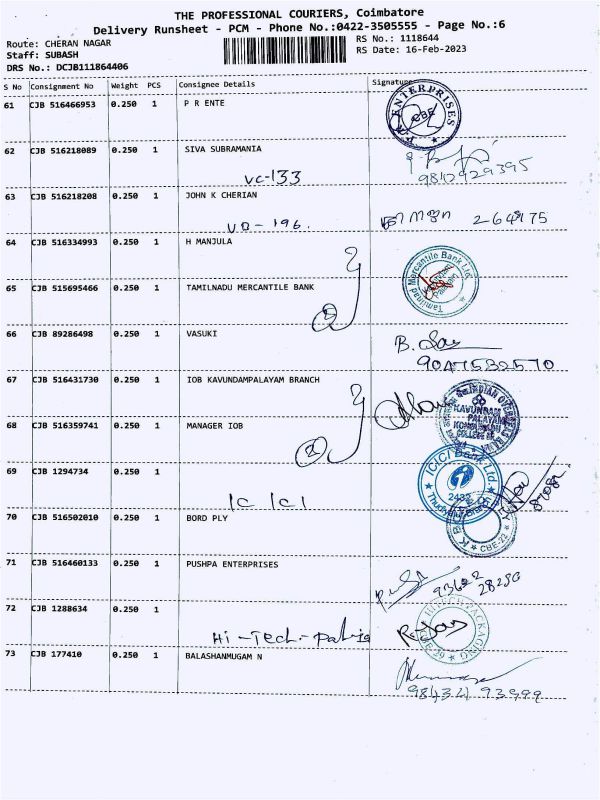 THE PROFESSIONAL COURIERS, Coimbatore
Delivery Runsheet - PCM - Phone No.:0422-3505555 - Page No.:6
Route: CHERAN NAGAR RS No.: 1118644
Staff: SUBASH RS Date: 16-Feb-2023
DRS No.: DCJB111864406
S No Consignment No Weight PCS Consignee Details Signature
61 CJB 516466953 0.250 1 P R ENTE
ENTERPRISES CBE
62 CJB 516218089 0.250 1 SIVA SUBRAMANIA
VC-133
63 CJB 516218208 0.250 1 JOHN K CHERIAN
264975
64 CJB 516334993 0.250 1 H MANJULA
65 CJB 515695466 0.250 1 TAMILNADU MERCANTILE BANK
Tamilnad Mercantile Bank Ltd
66 CJB 89286498 0.250 1 VASUKI
67 CJB 516431730 0.250 1 IOB KAVUNDAMPALAYAM BRANCH
INDIAN OVERSEAS BANK
KAVUNDAM
PALAYAM
68 CJB 516359741 0.250 1 MANAGER IOB
69 CJB 1294734 0.250 1
ICICI
ICICI Bank Ltd.
2432
70 CJB 516502010 0.250 1 BORD PLY
CBE-22
71 CJB 516460133 0.250 1 PUSHPA ENTERPRISES
72 CJB 1288634 0.250 1
Hi-Tech-
PACKAGING
73 CJB 177410 0.250 1 BALASHANMUGAM N